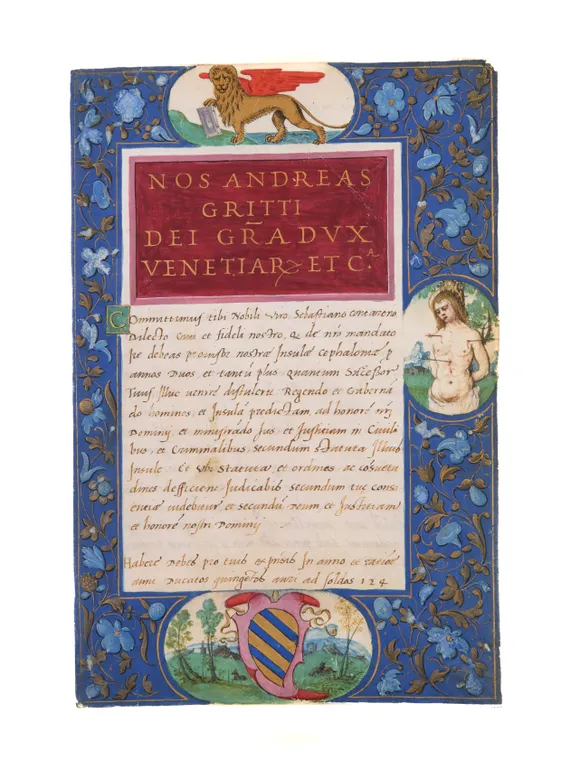 NOS ANDREAS
GRITTI
DEI GR̃A DVX
VENETIAR ET C.A
Committimus tibi Nobili Viro Sebastiano contareno
Dilecto Civi et fideli nostro, Q de nr̃o mandato
sis debeas provisor nostræ Insulæ Cephaloniæ p
annos Duos et tantũ plus quantum Successor
Tuus Illuc venire distulerit Regendo et Guberna
do homines, et Insulã predictam, ad honorẽ nr̃j
Dominij, et ministrãdo Jus, et Justitiam in Civili
bus, et Criminalibus, secundum statuta Illius
Insulæ Et Ubi Statuta, et ordines, ac cõsuetu
dines defficient Judicabis secundum tuc consc
ientiæ videbitur et secundũ Deum et Justitiam
et honorẽ nostri Dominij
Habere debes pro tuis expẽsis In anno et ratiõe
anni Ducatos quingẽtos auri ad soldos 124